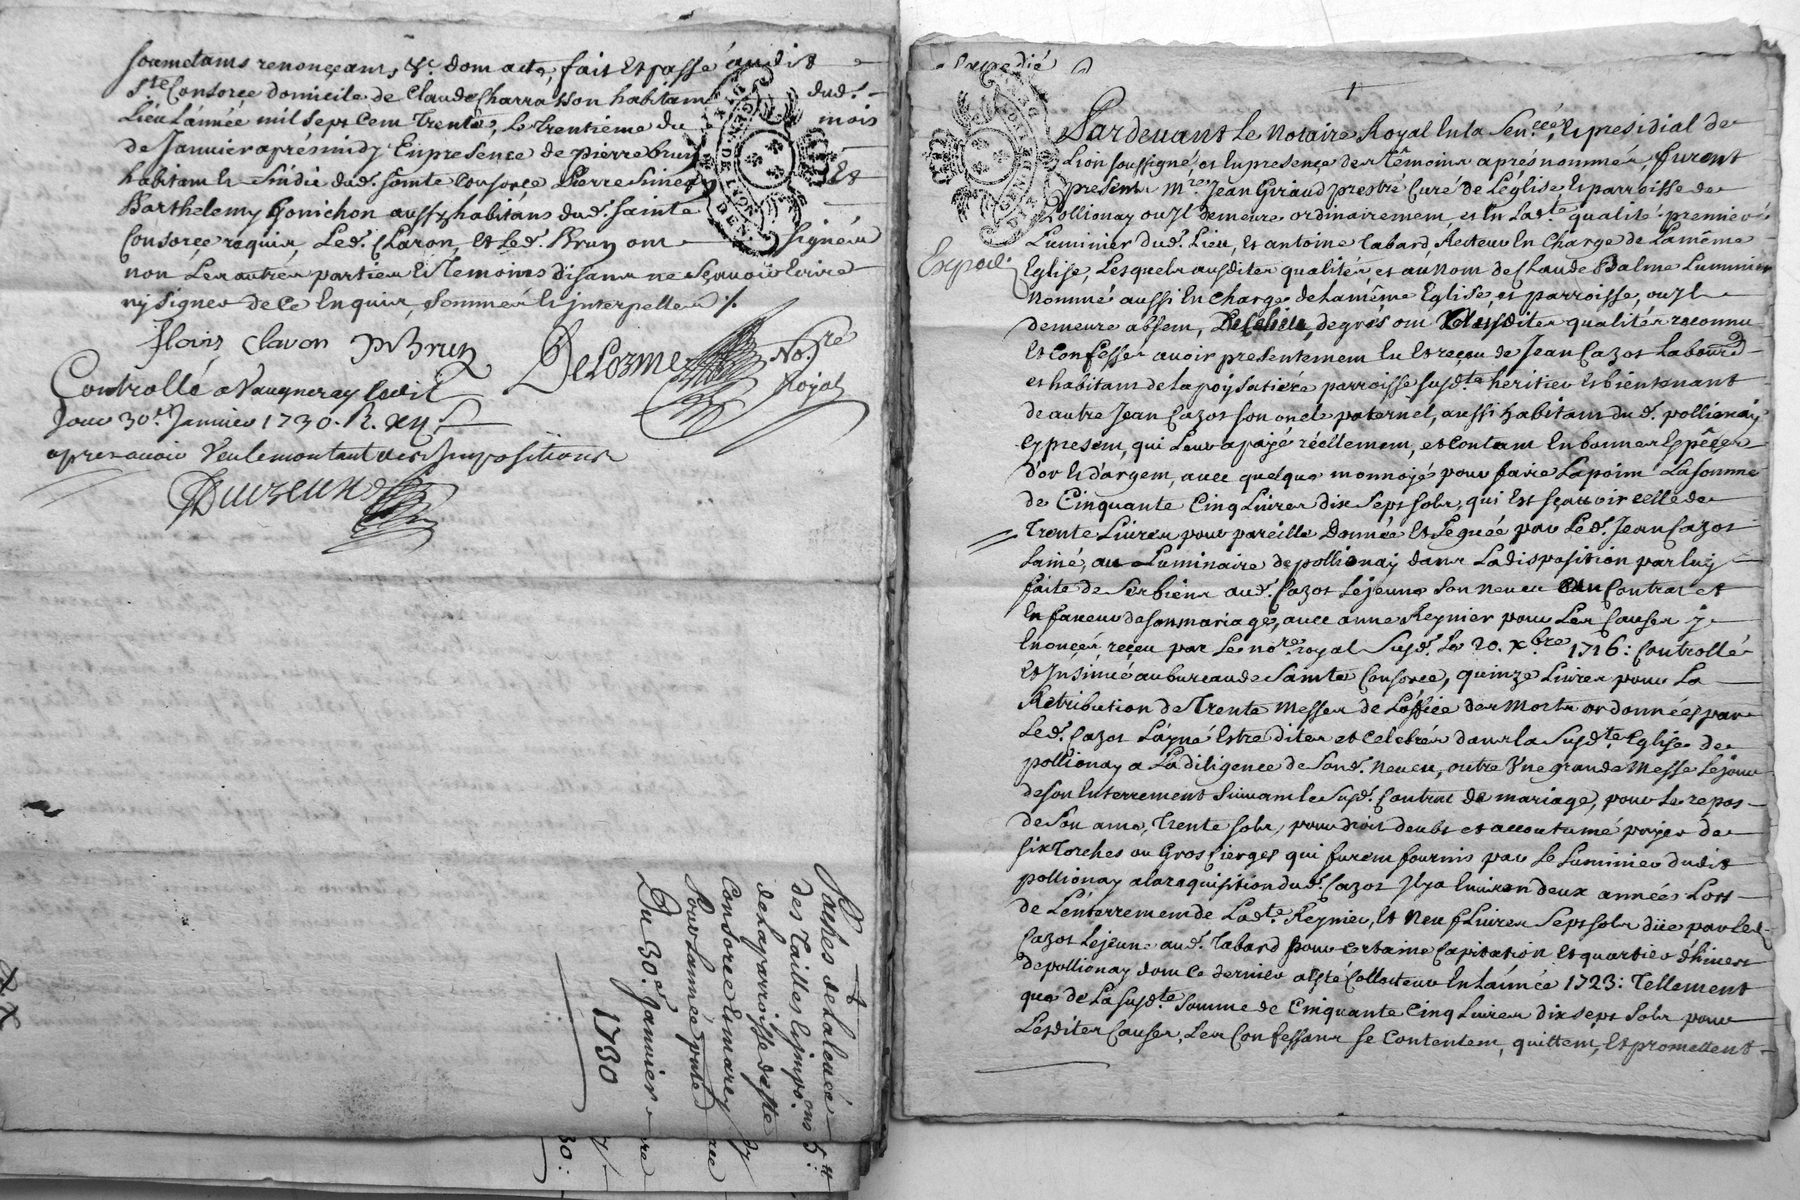 soumetans renonçeans, &c. dont acte, fait et passé audit
Ste Consorce domicile de Claude Charrasson habitant dud.
Lieu L'année mil sept cent trente, le trentieme du mois
de Janvier aprés midy En presence de pierre brun
habitant et Sindic dud. sainte Consorce Pierre et
Barthelemy Gonichon aussy habitans dud. sainte
Consorce requis, Led. Claron, et Led. Brun ont signéu
non Les autres parties et temoins disans ne sçavoir Ecrire
ny signer de ce Enquis, sommés et interpellés ./.
floris Claron P Brun DeLorme No.re
Royal
Controllé a Vaugneray ledit
Jour 30.e Janvier 1730. R. xII s
apres avoir Veu le montant des Impositions
Paches de la levée
des Tailles et impo.ons
de la parroisse de Ste
Consorce et marcy
Pour L'année pnte
Du 30.e Janvier
1730
Expedié
Pardevant Le Notaire Royal En la Sen.cée et presidial de
Lion soussigné, et En presence des têmoins aprés nommés furent
presents M.re Jean Giraud prestre Curé de L'église et parroisse de
Pollionay ou Il demeure ordinairement, et En Lad.te qualité premier
Luminier dud. Lieu, et antoine Tabard Recteur En Charge de La même
Expedié
Eglise, Lesquels ausdites qualités, et au Nom de Claude Balme Luminier
Nommé aussi En Charge de la même Eglise, et parroisse, ou Il
demeure absent, de grés ont ausdites qualités reconnu
Et Confessé avoir presentement Eu et reçeu de Jean Cazot Laboure.d
et habitant de La parroisse susd.te heritier et bientenant
de autre Jean Cazot son oncle paternel, aussi habitant dud. pollionay
cy present, qui Leur a payé réellement, et Contant En bonnes Espêces
d'or et d'argent, avec quelque monnoye pour faire La point La somme
de Cinquante Cinq Livres dix Sept sols, qui Est sçavoir celle de
Trente Livres pour pareille donnée et Leguée par Led. Jean Cazot
Lainé, au Luminaire de pollionay dans La disposition par luy
faite de ses biens aud. Cazot Lejeune son neveu au Contrat et
En faveur de son mariage, avec anne Reynier pour Les Causes y
Enoncées, reçeu par Le no.re royal Susd. Le 20. X.bre 1716: Controllé
Et Insinué au bureau de Sainte Consorce, quinze Livres pour La
Retribution de Trente Messes de L'office des Morts ordonnées par
Led. Cazot L'ayné Estre dites et Celebrées dans la Susd.te Eglise de
pollionay a La diligence de Sond. neveu, outre Une grande Messe Le jour
de son Enterrement Suivant le Susd. Contrat de mariage, pour le repos
de Son ame, Trente sols, pour droit deubt et accoutumé payer de
six Torches ou Gros Cierges qui furent fournis par le Luminier dudit
pollionay a la requisition dud. Cazot Il y a Environ deux années Lors
de L'enterrement de Lad.te Reynier, Et Neuf Livres Sept sols düe par led.
Cazot Lejeune aud. Tabard pour Certaine Capitation Et quartier d'hiver
de pollionay dont ce dernier a Esté Collecteur En L'année 1723: Tellement
que de La susd.te somme de Cinquante Cinq Livres dix sept sols pour
Lesdites Causes, Les Confessans se Contentent, quittent, Et promettent